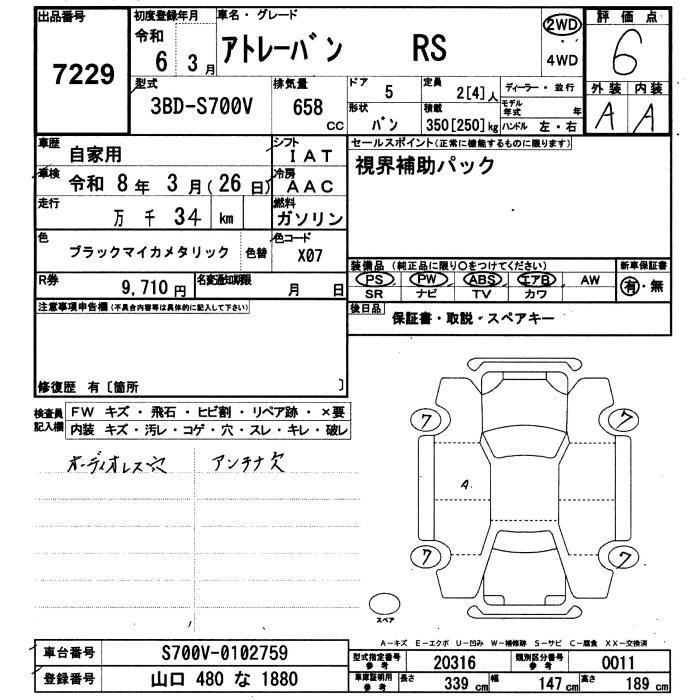 出品番号
7229
初度登録年月
令和
6年 3月
車名・グレード
アトレーバン RS
2WD
4WD
評価点
6
外装 内装
A A
型式
3BD-S700V
排気量
658 CC
ドア 5
形状 バン
定員 2[4]人
積載 350[250]kg
ディーラー・並行
モデル年式 年
ハンドル 左・右
車歴 自家用
シフト IAT
車検 令和 8年 3月(26日)
冷房 AAC
走行 万 千 34 km
燃料 ガソリン
色 ブラックマイカメタリック 色替
色コード X07
R券 9,710円
名変通知期限 月 日
セールスポイント(正常に機能するものに限ります)
視界補助パック
装備品 (純正品に限り○をつけてください)
PS PW ABS エアB AW
SR ナビ TV カワ
新車保証書
有・無
後日品 保証書・取説・スペアキー
注意事項申告欄(不具合内容等は具体的に記入して下さい)
修復歴 有〔箇所 〕
検査員記入欄
FW キズ・飛石・ヒビ割・リペア跡・×要
内装 キズ・汚レ・コゲ・穴・スレ・キレ・破レ
オーディオレス穴 アンテナ欠
7 7
A
7 7
スペア
A−キズ E−エクボ U−凹み W−補修跡 S−サビ C−腐食 XX−交換済
車台番号 S700V-0102759
登録番号 山口 480 な 1880
型式指定番号 参考 20316
類別区分番号 参考 0011
車庫証明用 参考 長さ 339cm 幅 147cm 高さ 189cm